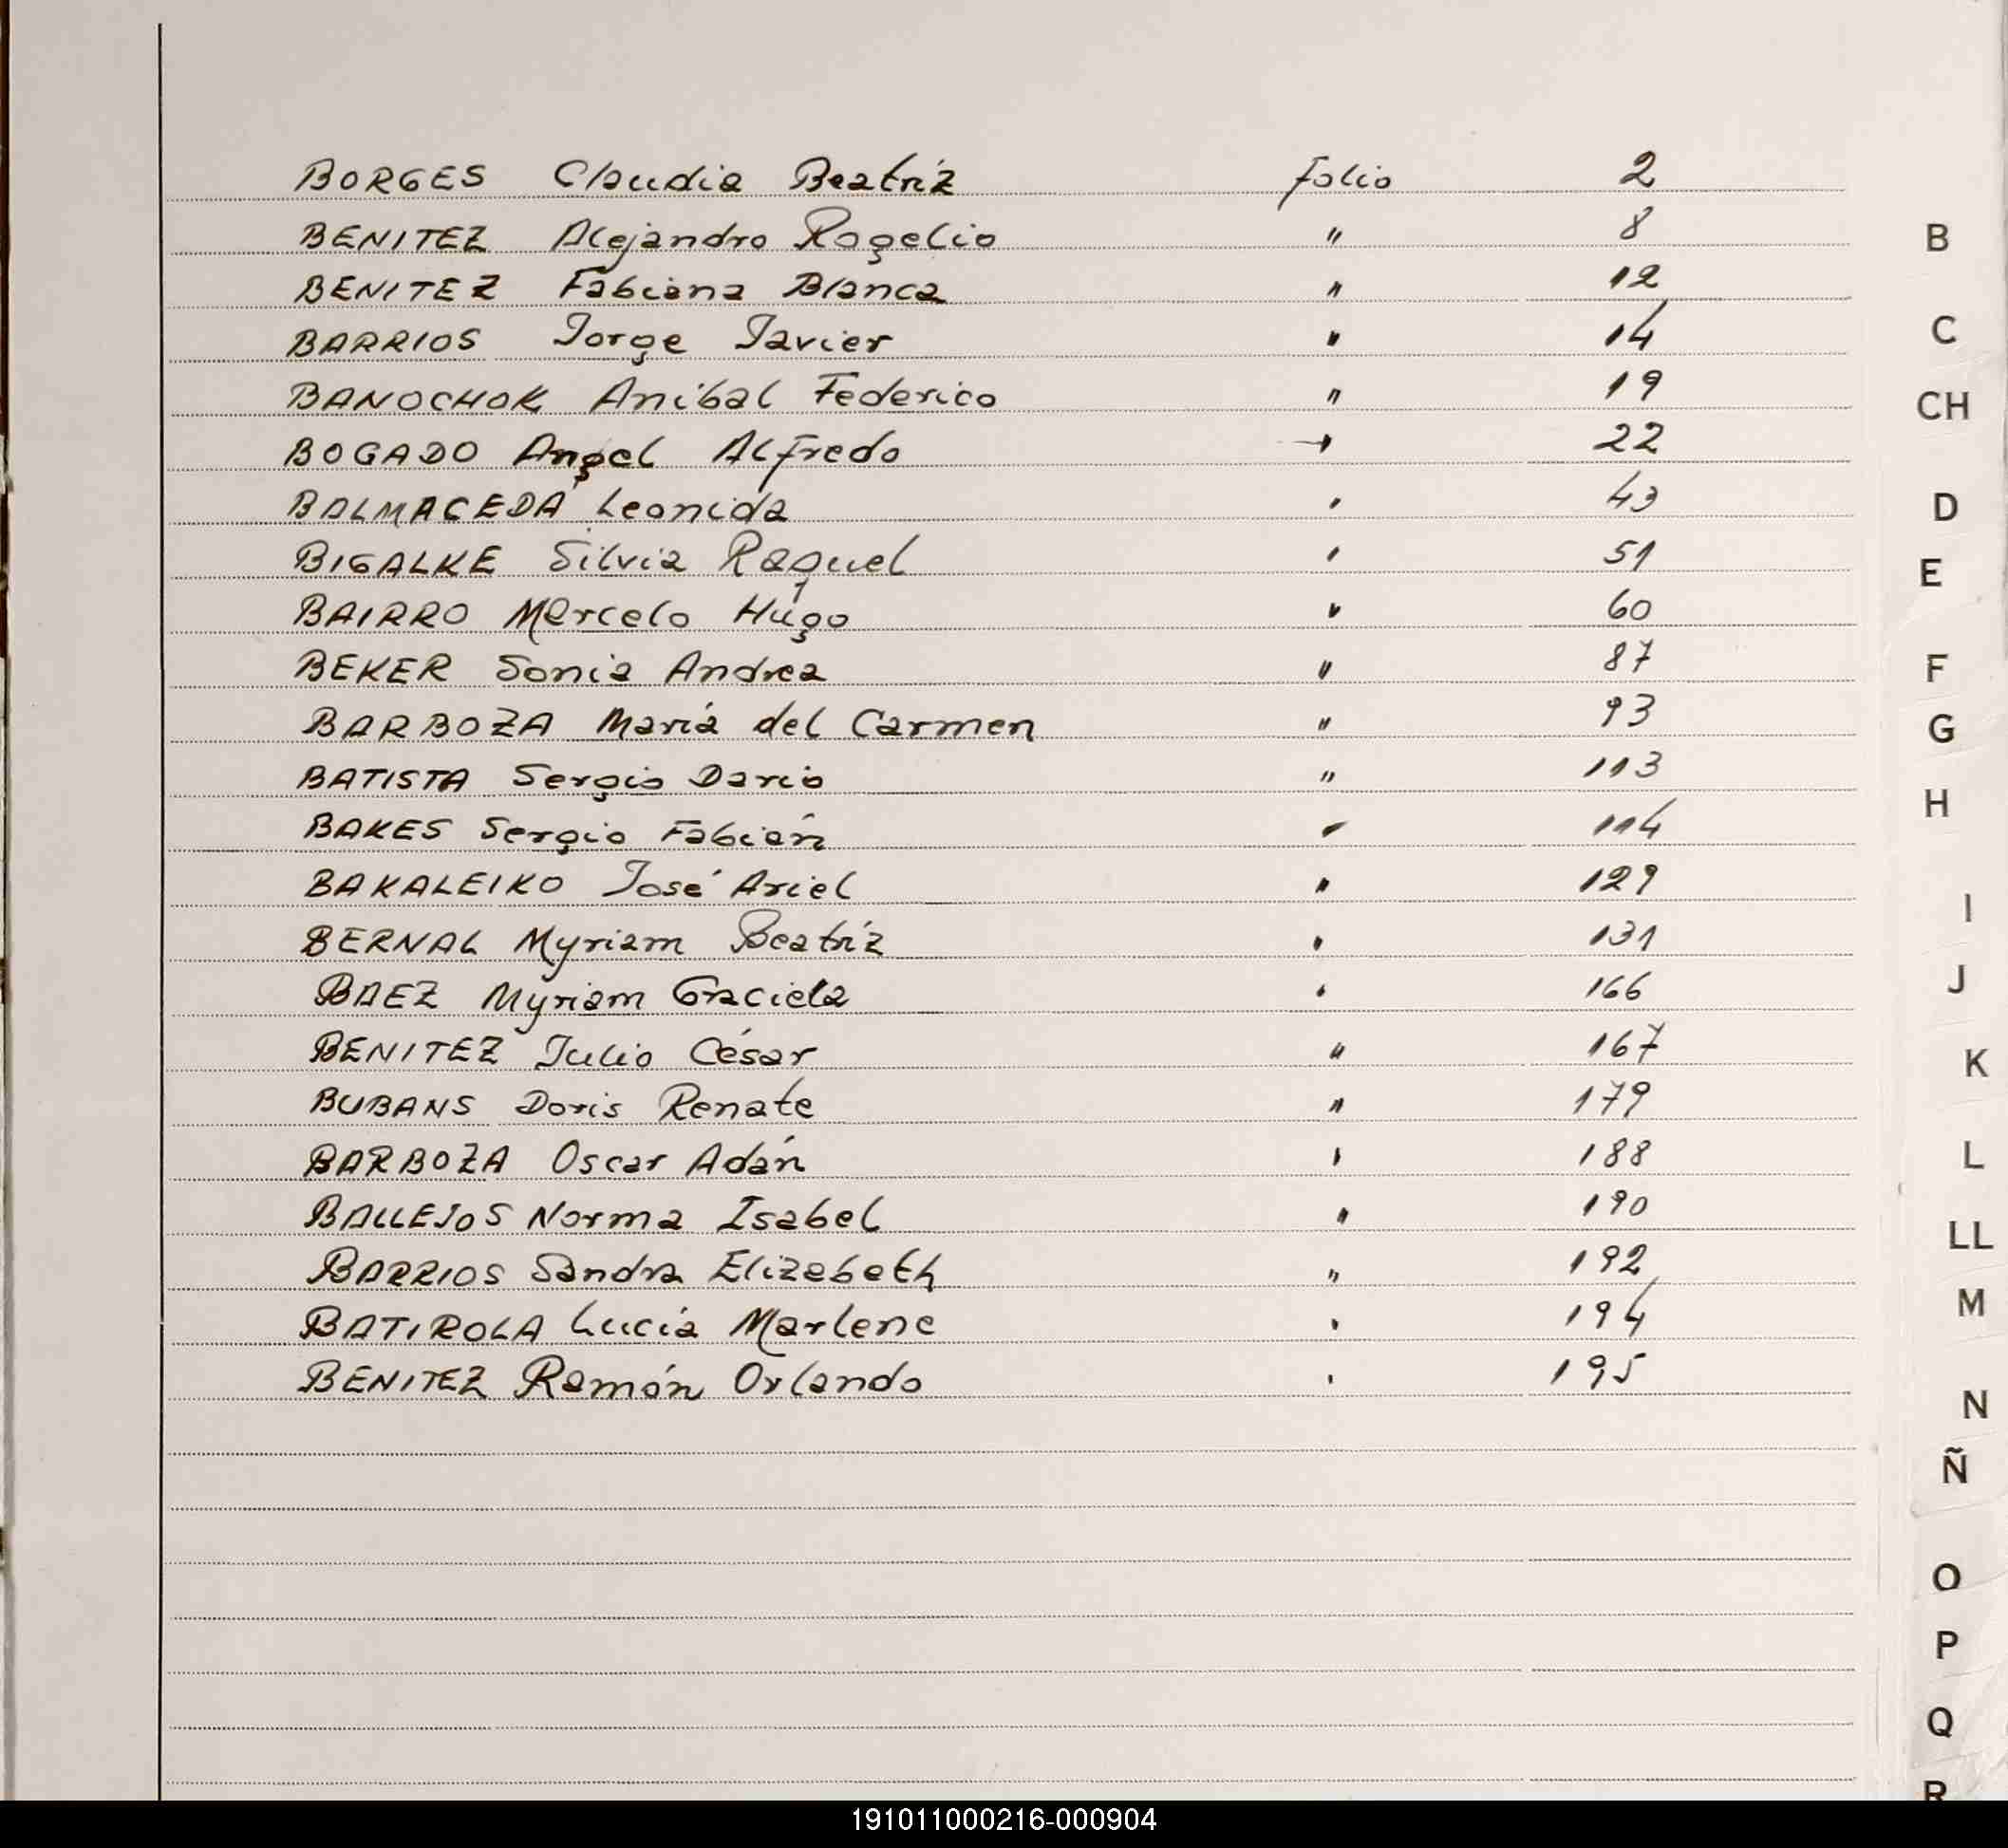 BORGES Claudia Beatríz folio 2
BENITEZ Alejandro Rogelio " 8
BENITEZ Fabiana Blanca " 12
BARRIOS Jorge Javier " 14
BANOCHOK Aníbal Federico " 19
BOGADO Angel Alfredo " 22
BALMACEDA Leonida " 43
BIGALKE Silvia Raquel " 51
BAIRRO Marcelo Hugo " 60
BEKER Sonia Andrea " 87
BARBOZA María del Carmen " 93
BATISTA Sergio Dario " 113
BAKES Sergio Fabián " 114
BAKALEIKO José Ariel " 129
BERNAL Myriam Beatríz " 131
BAEZ Myriam Graciela " 166
BENITEZ Julio César " 167
BUBANS Doris Renate " 179
BARBOZA Oscar Adán " 188
BALLEJOS Norma Isabel " 190
BARRIOS Sandra Elizabeth " 192
BATIROLA Lucía Marlene " 194
BENITEZ Ramón Orlando " 195
B
C
CH
D
E
F
G
H
I
J
K
L
LL
M
N
Ñ
O
P
Q
R
191011000216-000904